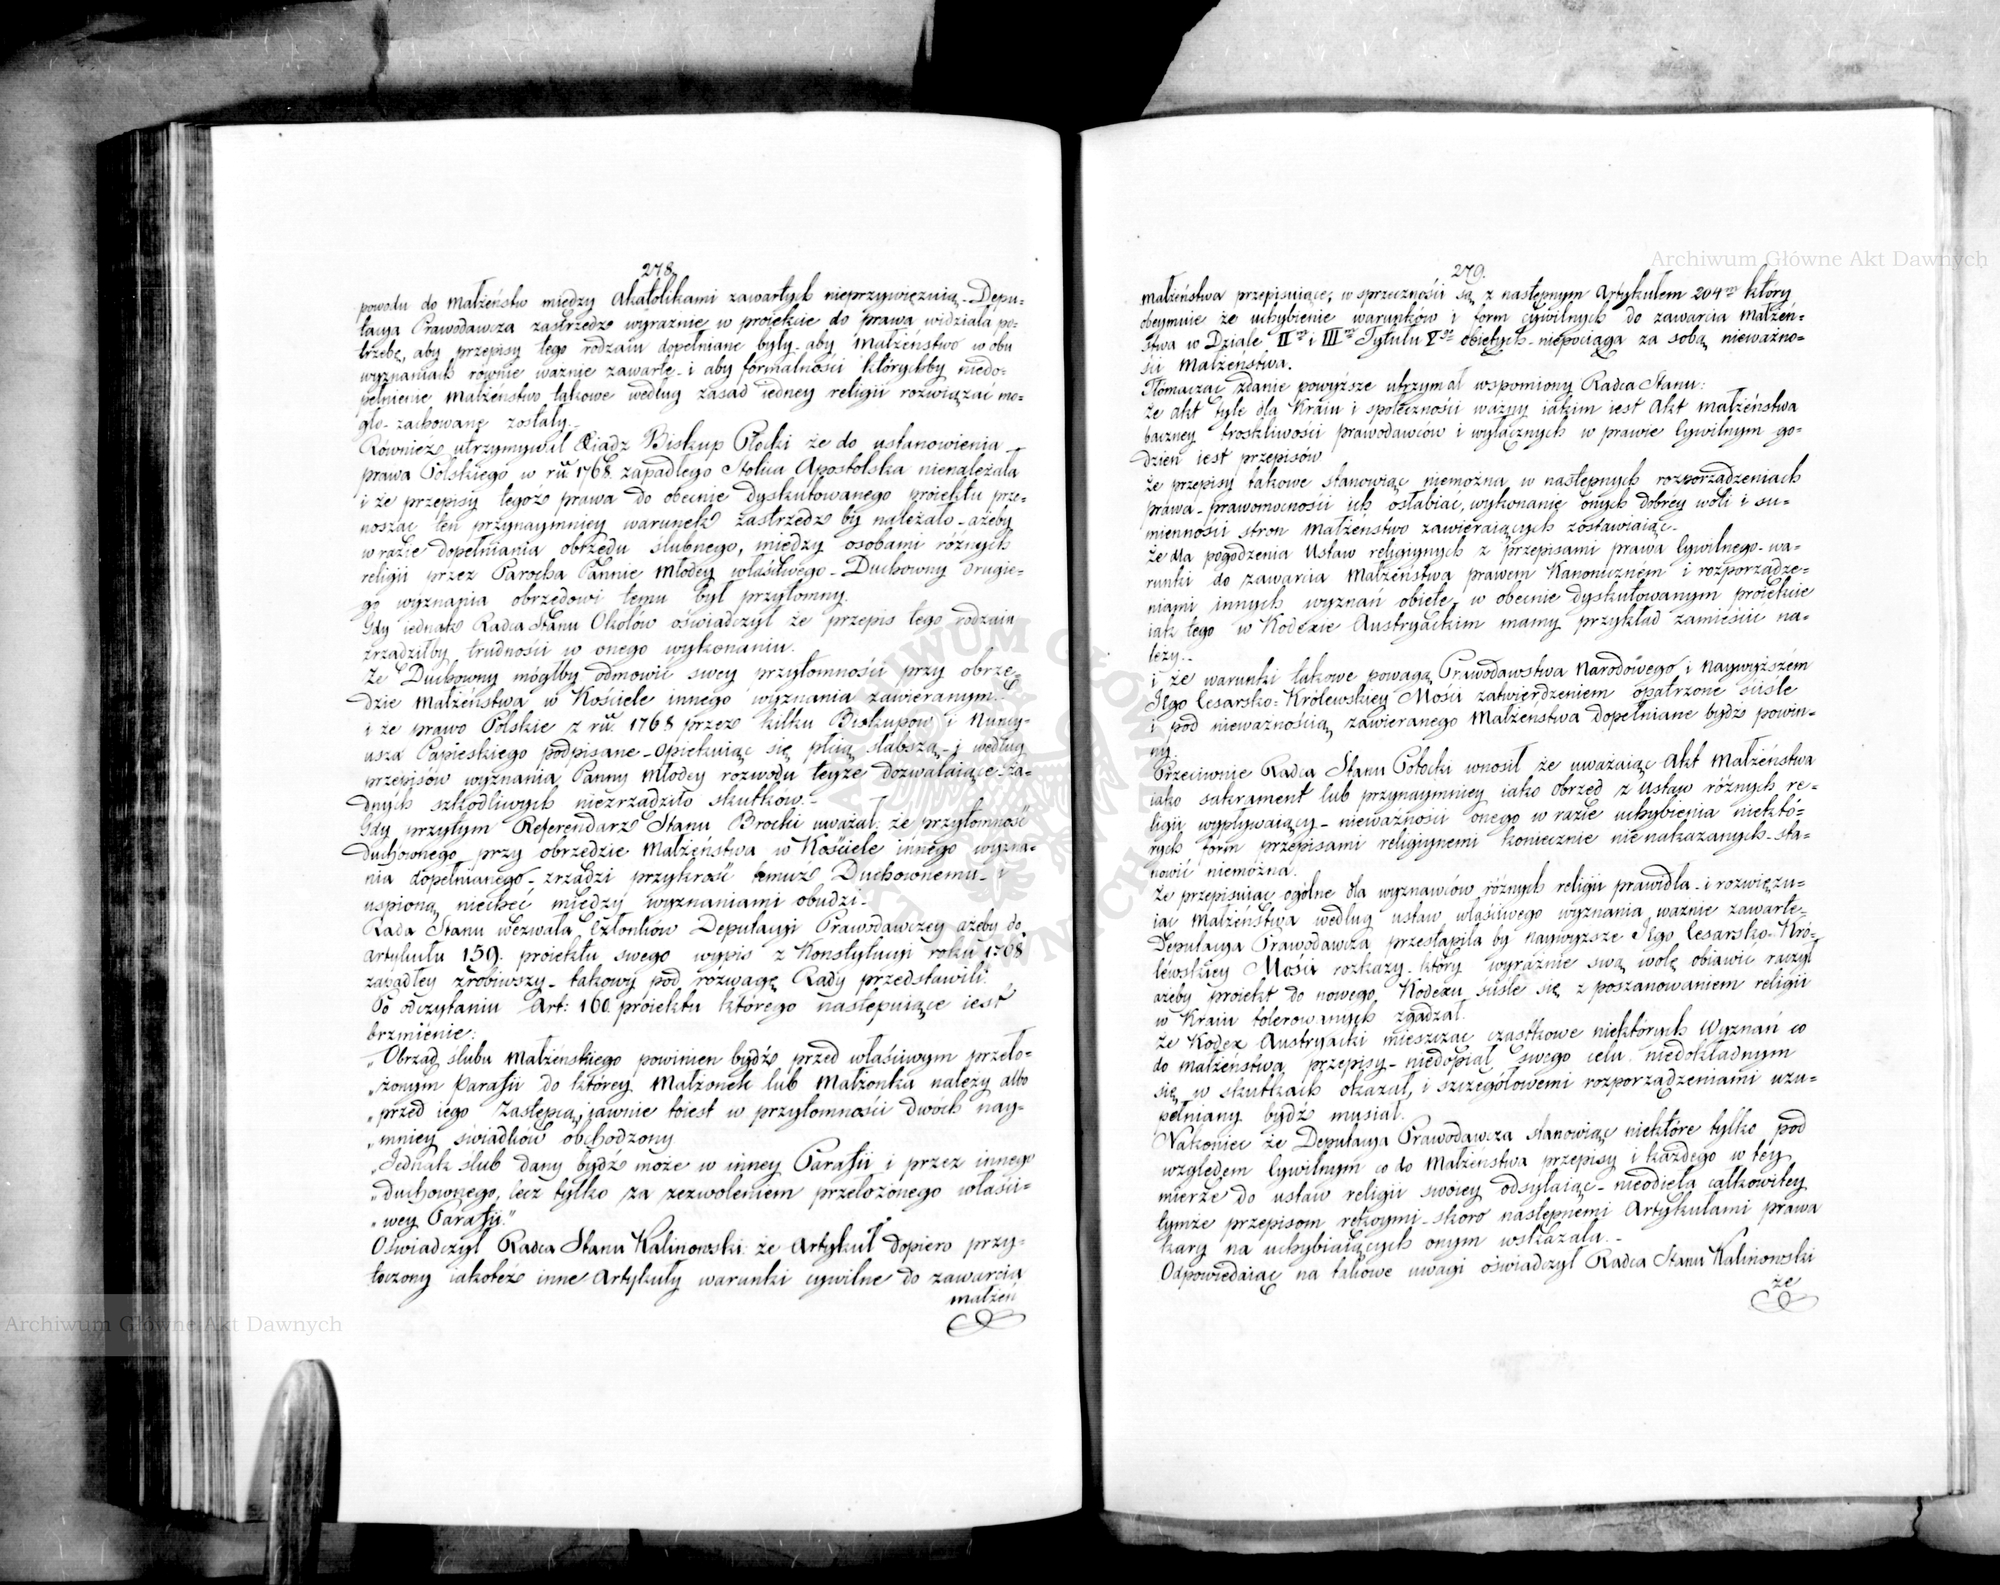 278.
powodu do Małżeństw między Akatolikami zawartych nieprzywięzuią - Depu-
tacya Prawodawcza zastrzedz wyraźnie w proiekcie do prawa widziała po-
trzebę, aby przepisy tego rodzaiu dopełniane były - aby Małżeństwo w obu
wyznaniach równie ważnie zawarte - i aby formalności którychby niedo-
pełnienie Małżeństwo takowe według zasad iedney religii rozwiązać mo-
gło - zachowane zostały -
Również utrzymywał Xiądz Biskup Płocki że do ustanowienia
prawa Polskiego w ru. 1768 zapadłego Stolica Apostolska nienależała
i że przepisy tegoż prawa do obecnie dyskutowanego proiektu prze-
nosząc ten przynaymniey warunek zastrzedz by należało - ażeby
w razie dopełniania obrzędu ślubnego, między osobami różnych
religii przez Parocha Pannie Młodey właściwego - Duchowny drugie-
go wyznania obrzędowi temu był przytomny.
Gdy iednak Radca Stanu Okołow oświadczył że przepis tego rodzaiu
zrządziłby trudności w onego wykonaniu.
Że Duchowny mógłby odmowić swey przytomności przy obrzę-
dzie Małżeństwa w Kościele innego wyznania zawieranym -
i że prawo Polskie z ru. 1768 przez kilku Biskupów i Nuncy-
usza Papieskiego podpisane - opiekuiąc się płcią słabszą - i według
przepisów wyznania Panny Młodey rozwodu teyże dozwalaiące ża-
dnych szkodliwych niezrządziło skutków -
Gdy przytym Referendarz Stanu Brocki uważał: że przytomność
duchownego przy obrzędzie Małżeństwa w Kościele innego wyzna-
nia dopełnianego - zrządzi przykrość temuż Duchownemu - i
uspioną niechęć między wyznaniami obudzi -
Rada Stanu wezwała Członków Deputacyi Prawodawczey ażeby do
Artykułu 159. proiektu swego wypis z Konstytucyi roku 1768
zapadłey zrobiwszy - takowy pod rozwagę Rady przedstawili.
Po odczytaniu Art: 160. proiektu którego następuiące iest
brzmienie:
„Obrząd ślubu Małżeńskiego powinien bydź przed właściwym przeło-
„żonym Parafii do którey Małżonek lub Małżonka należy albo
„przed iego Zastępcą, iawnie toiest w przytomności dwóch nay-
„mniey świadków obchodzony
„Jednak ślub dany bydź może w inney Parafii i przez innego
„duchownego, lecz tylko za zezwoleniem przełożonego właści-
„wey Parafii."
Oświadczył Radca Stanu Kalinowski: że Artykuł dopiero przy-
toczony iakoteż inne Artykuły warunki cywilne do zawarcia
małżeń
279.
Małżeństwa przepisuiące, w sprzeczności są z następnym Artykułem 204m który
obeymuie że uchybienie warunków i form cywilnych do zawarcia Małżeń-
stwa w Dziale II i III Tytułu V obiętych - niepociąga za sobą nieważno-
ści Małżeństwa.
Tłómacząc zdanie powyższe utrzymał wspomiony Radca Stanu:
że akt tyle dla Kraiu i społeczności ważny iakim iest Akt Małżeństwa
baczney troskliwości prawodawców i wyłącznych w prawie Cywilnym go-
dzien iest przepisów
że przepisy takowe stanowiąc niemożna w następnych rozporządzeniach
prawa - prawomocności ich osłabiać, wykonanie onych dobrey woli i su-
mienności stron Małżeństwo zawieraiących zostawiaiąc -
że dla pogodzenia Ustaw religiynych z przepisami prawa Cywilnego - wa-
runki do zawarcia Małżeństwa prawem Kanonicznem i rozporządze-
niami innych wyznań obięte, w obecnie dyskutowanym proiekcie
iak tego w Kodexie Austryackim mamy przykład zamieścić na-
leży -
i że warunki takowe powagą Prawodawstwa Narodowego i Naywyższem
Jego Cesarsko-Królewskiey Mości zatwierdzeniem opatrzone ściśle
i pod nieważnością zawieranego Małżeństwa dopełniane bydź powin-
ny.
Przeciwnie Radca Stanu Potocki wnosił że uważaiąc Akt Małżeństwa
iako sakrament lub przynaymniey iako obrzęd z Ustaw różnych re-
ligii wypływaiący - nieważności onego w razie uchybienia niektó-
rych form przepisami religiynemi koniecznie nienakazanych - sta-
nowić niemożna.
że przepisuiąc ogólne dla wyznawców różnych religii prawidła - i rozwięzu-
iąc Małżeństwa według ustaw właściwego wyznania ważnie zawarte -
Deputacya Prawodawcza przestąpiła by naywyższe Jego Cesarsko-Kró-
lewskiey Mości rozkazy - który wyraźnie swą wolę obiawić raczył
ażeby proiekt do nowego Kodexu ściśle się z poszanowaniem religii
w Kraiu tolerowanych zgadzał.
że Kodex Austryacki mieszcząc cząstkowe niektórych Wyznań co
do małżeństwa przepisy - niedopiął swego celu niedokładnym
się w skutkach okazał, i szczegółowemi rozporządzeniami uzu-
pełniany bydź musiał.
Nakoniec że Deputacya Prawodawcza stanowiąc niektóre tylko pod
względem Cywilnym co do Małżeństwa przepisy i każdego w tey
mierze do ustaw religii swoiey odsyłaiąc - nieodięła całkowitey
tymże przepisom rękoymi - skoro następnemi Artykułami prawa
kary na uchybiaiących onym wskazała -
Odpowiedaiąc na takowe uwagi oświadczył Radca Stanu Kalinowski
że
Archiwum Główne Akt Dawnych
Archiwum Główne Akt Dawnych